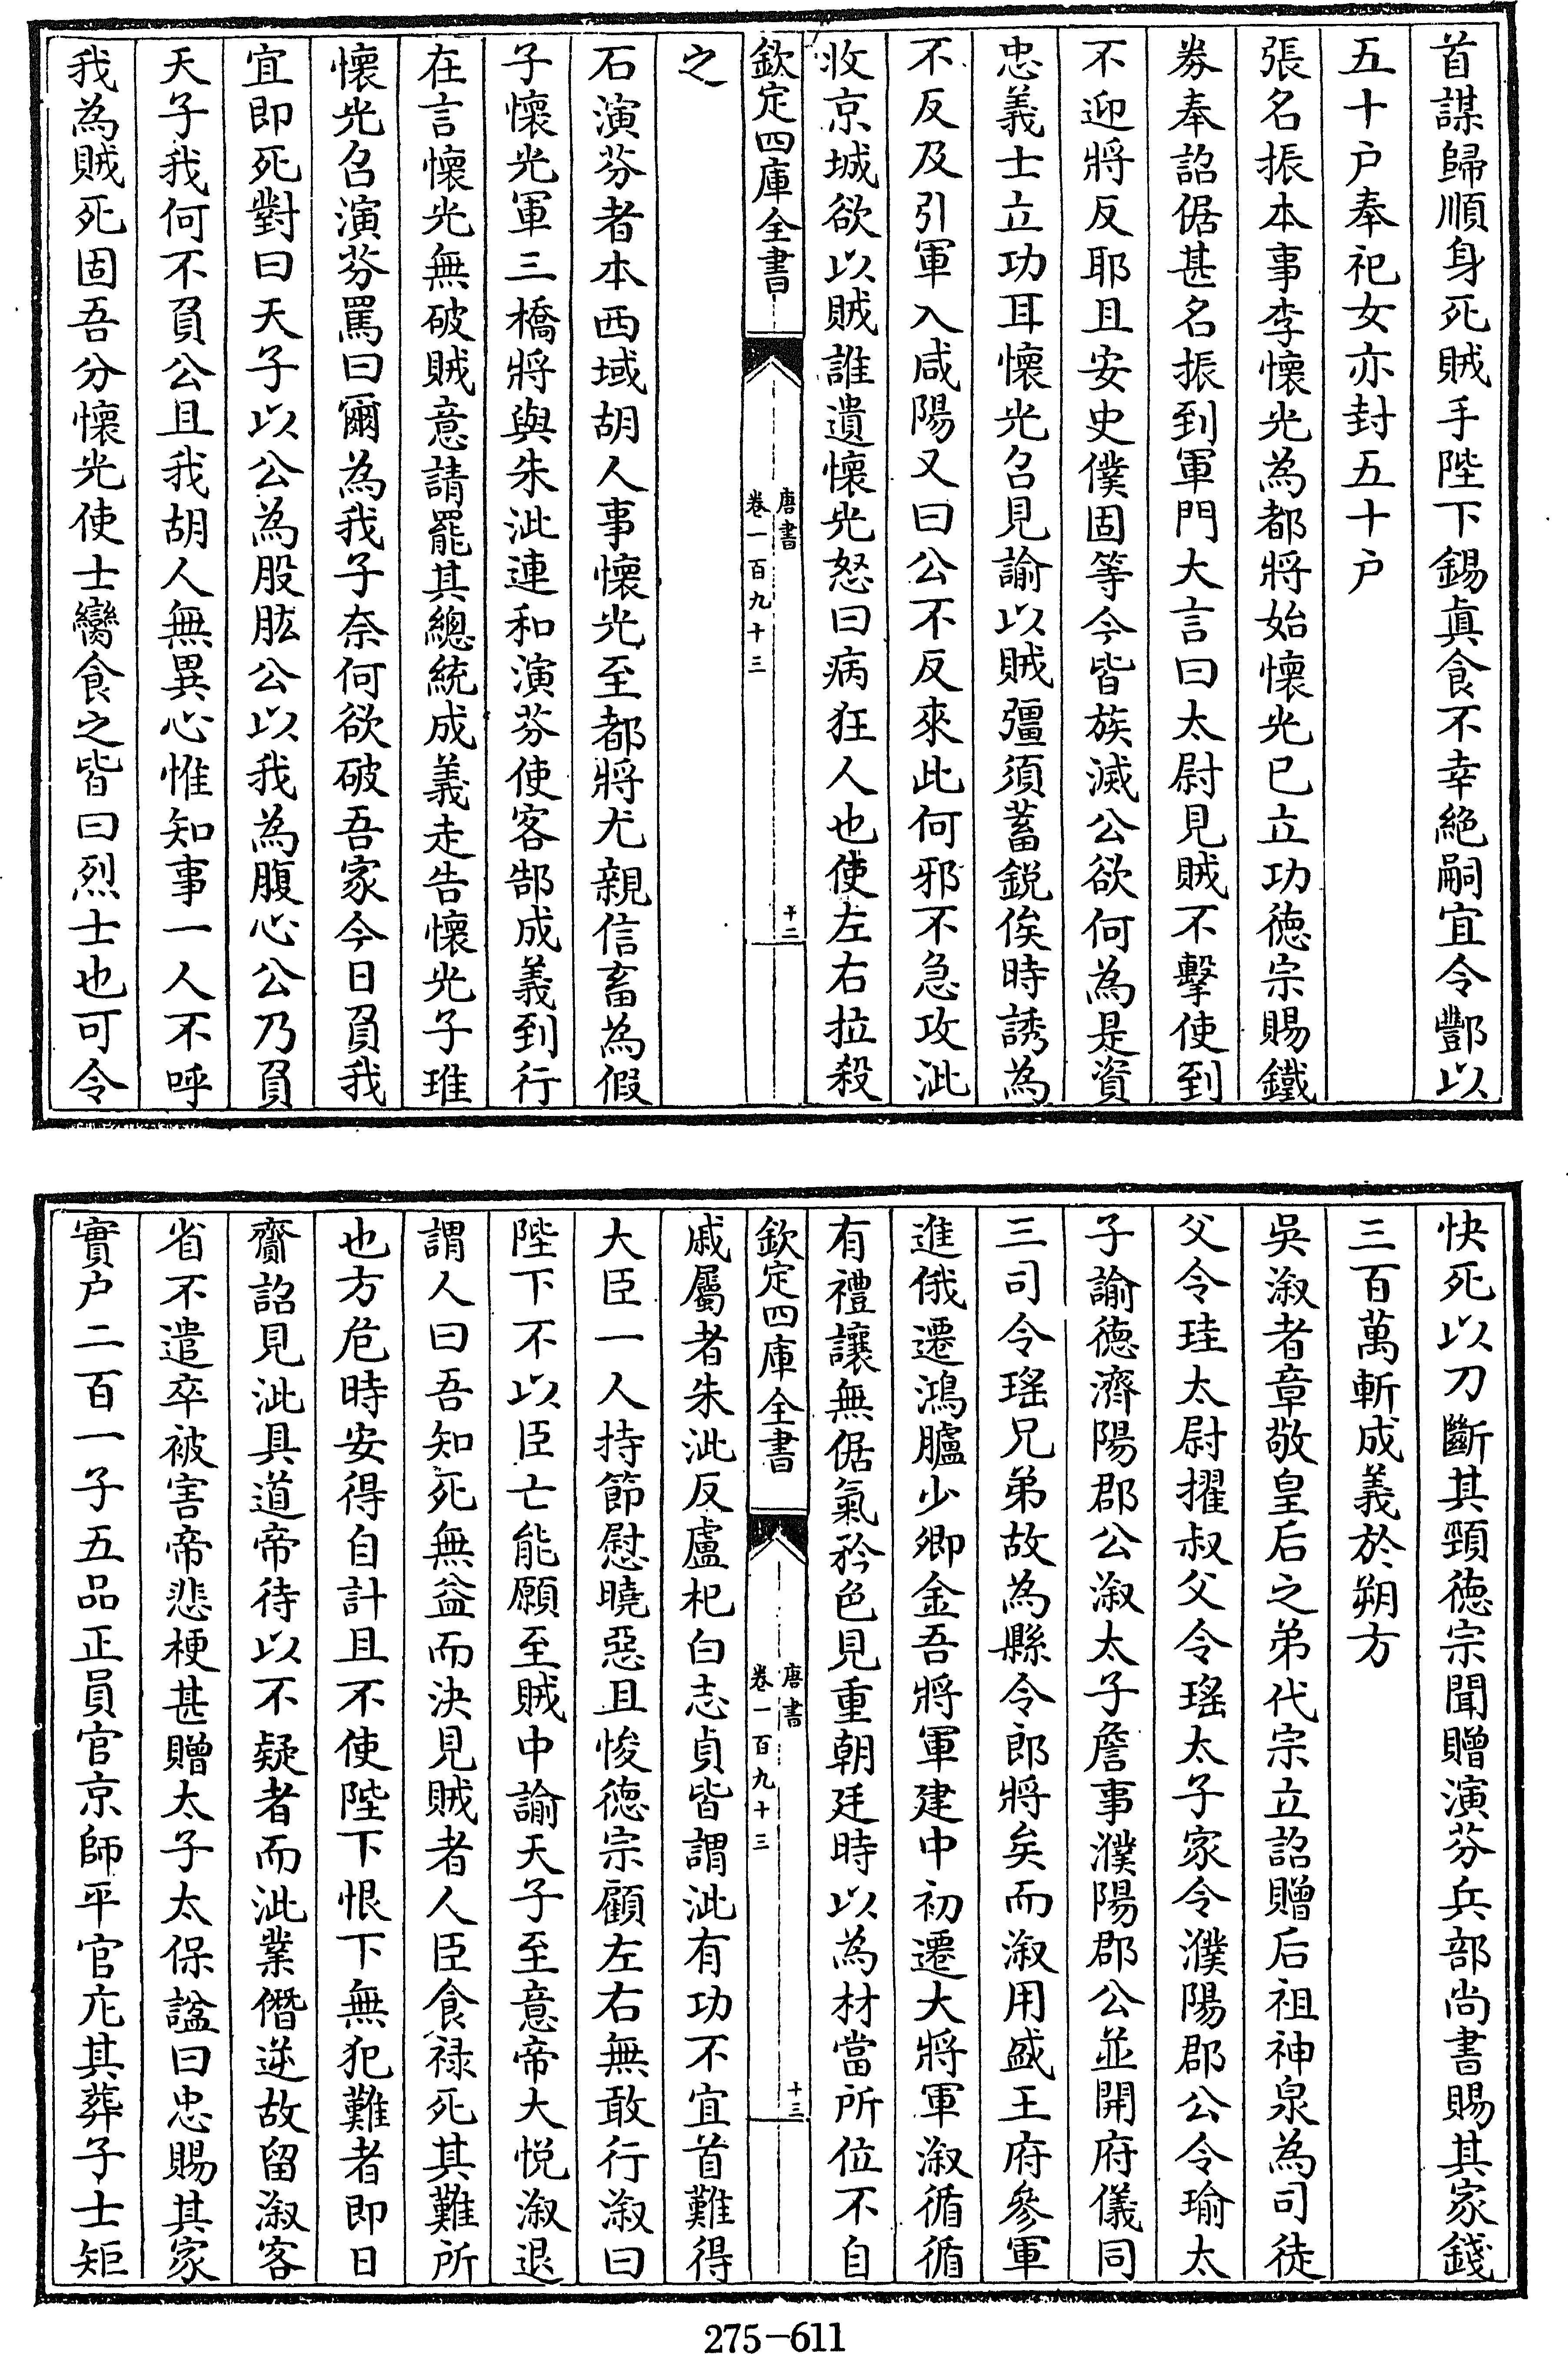 首謀歸順身死賊手陛下錫真食不幸絶嗣宜令酆以
五十户奉祀女亦封五十户
張名振本事李懷光為都將始懷光已立功德宗賜鐵
劵奉詔倨甚名振到軍門大言曰太尉見賊不擊使到
不迎將反耶且安史僕固等今皆族滅公欲何為是資
忠義士立功耳懷光召見諭以賊彊須蓄鋭俟時誘為
不反及引軍入咸陽又曰公不反來此何邪不急攻泚
收京城欲以賊誰遺懷光怒曰病狂人也使左右拉殺
欽定四庫全書
唐書
卷一百九十三
十二
之
石演芬者本西域胡人事懷光至都將尤親信畜為假
子懷光軍三橋將與朱泚連和演芬使客郜成義到行
在言懷光無破賊意請罷其總統成義走告懷光子琟
懷光召演芬罵曰爾為我子奈何欲破吾家今日負我
宜即死對曰天子以公為股肱公以我為腹心公乃負
天子我何不負公且我胡人無異心惟知事一人不呼
我為賊死固吾分懷光使士臠食之皆曰烈士也可令
快死以刀斷其頸德宗聞贈演芬兵部尚書賜其家錢
三百萬斬成義於朔方
吳溆者章敬皇后之弟代宗立詔贈后祖神泉為司徒
父令珪太尉擢叔父令瑤太子家令濮陽郡公令瑜太
子諭德濟陽郡公溆太子詹事濮陽郡公並開府儀同
三司令瑤兄弟故為縣令郎將矣而溆用盛王府參軍
進俄遷鴻臚少卿金吾將軍建中初遷大將軍溆循循
有禮讓無倨氣矜色見重朝廷時以為材當所位不自
欽定四庫全書
唐書
卷一百九十三
十三
戚屬者朱泚反盧杞白志貞皆謂泚有功不宜首難得
大臣一人持節慰曉惡且悛德宗顧左右無敢行溆曰
陛下不以臣亡能願至賊中諭天子至意帝大悦溆退
謂人曰吾知死無益而決見賊者人臣食禄死其難所
也方危時安得自計且不使陛下恨下無犯難者即日
齎詔見泚具道帝待以不疑者而泚業僭逆故留溆客
省不遣卒被害帝悲梗甚贈太子太保諡曰忠賜其家
實户二百一子五品正員官京師平官庀其葬子士矩
275-611